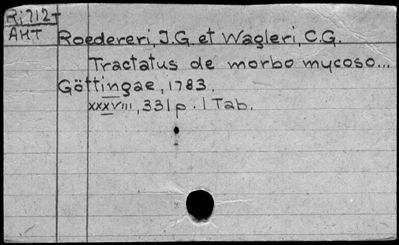 Ri712-
AHT
Roedereri, J.G. et Wagleri, C.G.
Tractatus de morbo mycoso...
Göttingae, 1783.
xxxviii, 331p. 1 Tab.